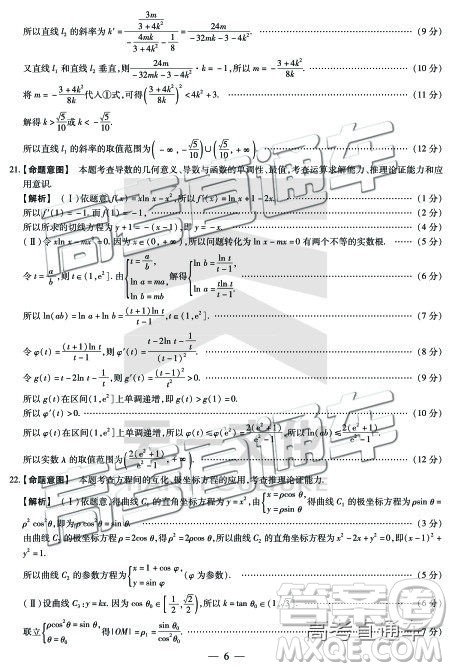 所以直线 l₃ 的斜率为 k' = (3m/(3+4k²))/(-4mk/(3+4k²) - 1/8) = 24m/(-32mk-3-4k²). (9 分)
又直线 l₁ 和直线 l₂ 垂直,则 24m/(-32mk-3-4k²)·k = -1, (10 分)
将 m = -(3+4k²)/8k 代入①式,可得((3+4k²)/8k)² < 4k²+3. (11 分)
解得 k > √5/10 或 k < -√5/10.
所以直线 l₁ 的斜率的取值范围为(-∞, -√5/10)∪(√5/10, +∞). (12 分)
21.【命题意图】 本题考查导数的几何意义、导数与函数的单调性、最值,考查运算求解能力、推理论证能力和应
用意识.
【解析】 (Ⅰ)依题意,f(x) = xln x - x², 所以 f'(x) = ln x + 1 - 2x. (1 分)
所以 f'(1) = -1, 而 f(1) = -1, (2 分)
所以所求的切线方程为 y+1 = -(x-1),即 y = -x. (4 分)
(Ⅱ)令 xln x - mx² = 0. 因为 x∈(0, +∞),所以问题转化为 ln x - mx = 0 有两个不等的实数根. (5 分)
令 t = a/b, 则 t∈(1,e²]. 由 {t = a/b, ln a = ma, ln b = mb 解得 {ln b = ln t/(t-1), ln a = tln t/(t-1).
所以 ln(ab) = ln a + ln b = (t+1)ln t/(t-1), t∈(1,e²]. (7 分)
令 φ(t) = (t+1)ln t/(t-1), 则 φ'(t) = (t-2ln t-1/t)/(t-1)². (8 分)
令 g(t) = t-2ln t-1/t, 则 g'(t) = (t-1)²/t² > 0.
所以 g(t)在区间(1,e²]上单调递增,即 g(t) > g(1) = 0.
所以 φ'(t) > 0. (10 分)
所以 φ(t)在区间(1,e²]上单调递增,所以 φ(t) ≤ φ(e²) = 2(e²+1)/(e²-1), 即 ln(ab) ≤ 2(e²+1)/(e²-1).
所以实数 λ 的取值范围为[2(e²+1)/(e²-1), +∞). (12 分)
22.【命题意图】 本题考查方程间的互化、极坐标方程的应用,考查推理论证能力.
【解析】 (Ⅰ)依题意,得曲线 C₁ 的直角坐标方程为 y = x²,由 {x = ρcos θ, y = ρsin θ, 得曲线 C₁ 的极坐标方程为 ρsin θ =
ρ²cos²θ,即为 ρcos²θ = sin θ. (3 分)
由曲线 C₂ 的极坐标方程为 ρ = 2cos θ,得 ρ² = 2ρcos θ,所以曲线 C₂ 的直角坐标方程为 x²-2x+y² = 0,即(x-1)²+
y² = 1.
所以曲线 C₂ 的参数方程为 {x = 1+cos φ, y = sin φ (φ 为参数). (5 分)
(Ⅱ)设曲线 C₃: y = kx. 因为 cos θ₀∈[1/2, √2/2], 所以 k = tan θ₀∈[1,
联立 {ρcos²θ = sin θ, θ = θ₀, 得 |OM| = ρ₁ = sin θ₀/cos²θ₀.
— 6 —
高考直通车
高考直通车